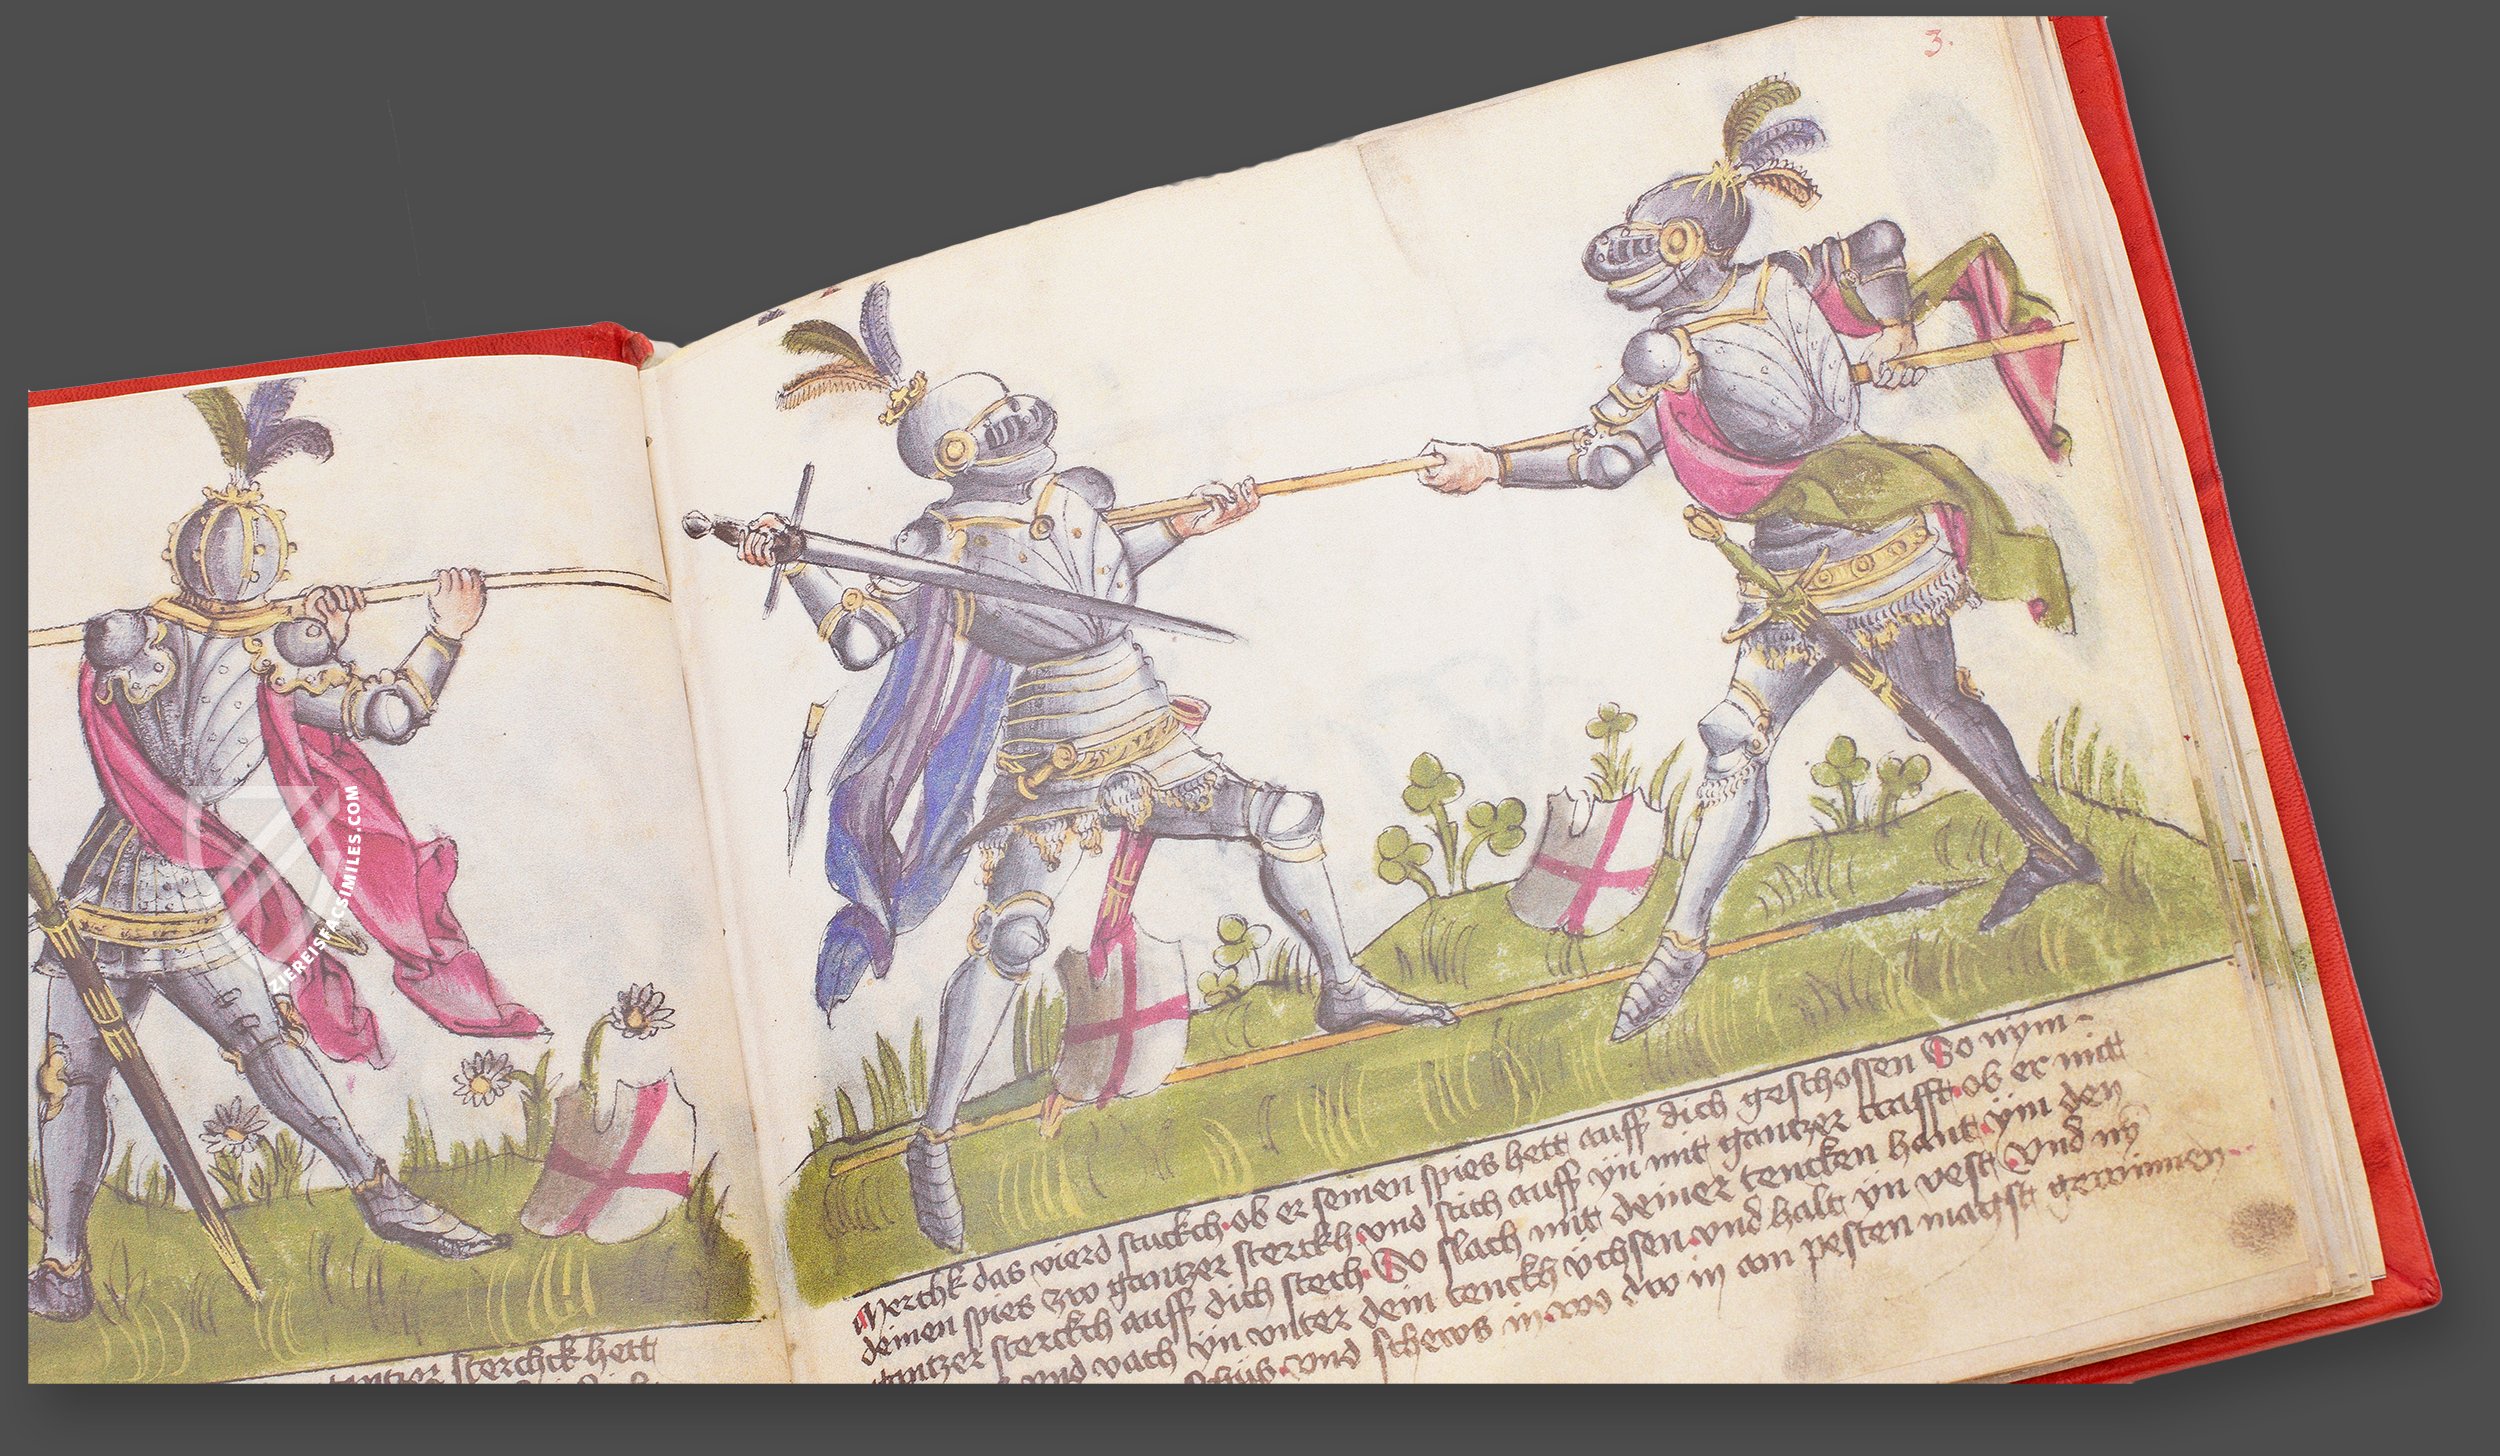 3.
tantzer sterchck hett
ZIEREISFACSIMILES.COM
Merchk das vierd stuckch ob er seinen spies hett auff dich geschossen So nym
deinen spies zw gantzer sterckh vnd stich auff yn mit gantzer crafft ob er mitt
gantzer sterckch auff dich stech So slach mit deiner tencken hant ym den
vnd vach yn vnter dein tenckh üchsen vnd halt yn vest Vnd ny
schüb vnd schews in wo dw in am pesten magst gewinnen